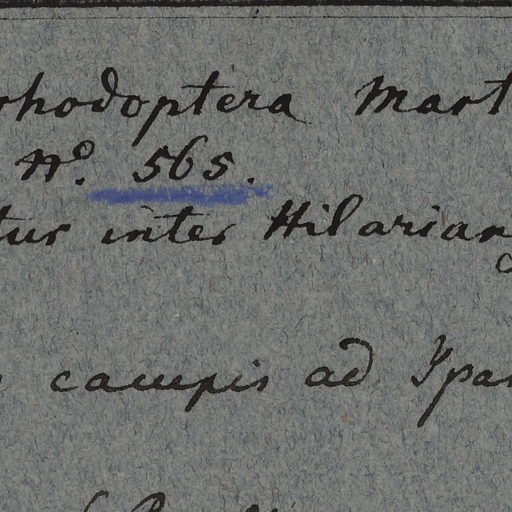 rhodoptera Mart
No. 565.
tur inter Hilarian
campis ad Ypan